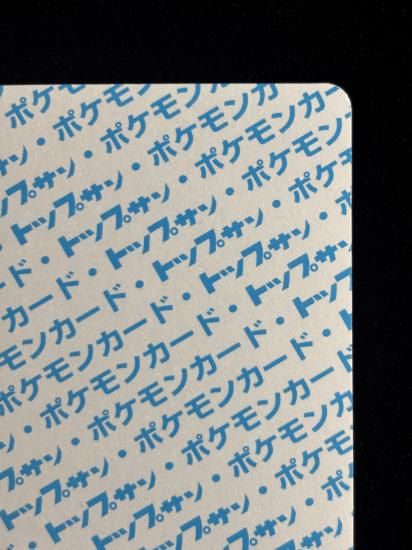 ポケモ
サン・ポケモン
ップサン・ポケモンカ
・トップサン・ポケモンカード
ド・トップサン・ポケモン
カード・トップサン・ポケ
モンカード・トップサン・
ポケモンカード・トップサ
・ポケモンカード・トッ
サン・ポケモンカード・
トップサン・ポケモンカー
・トップサン・ポケモン
トップサン・ポケモ